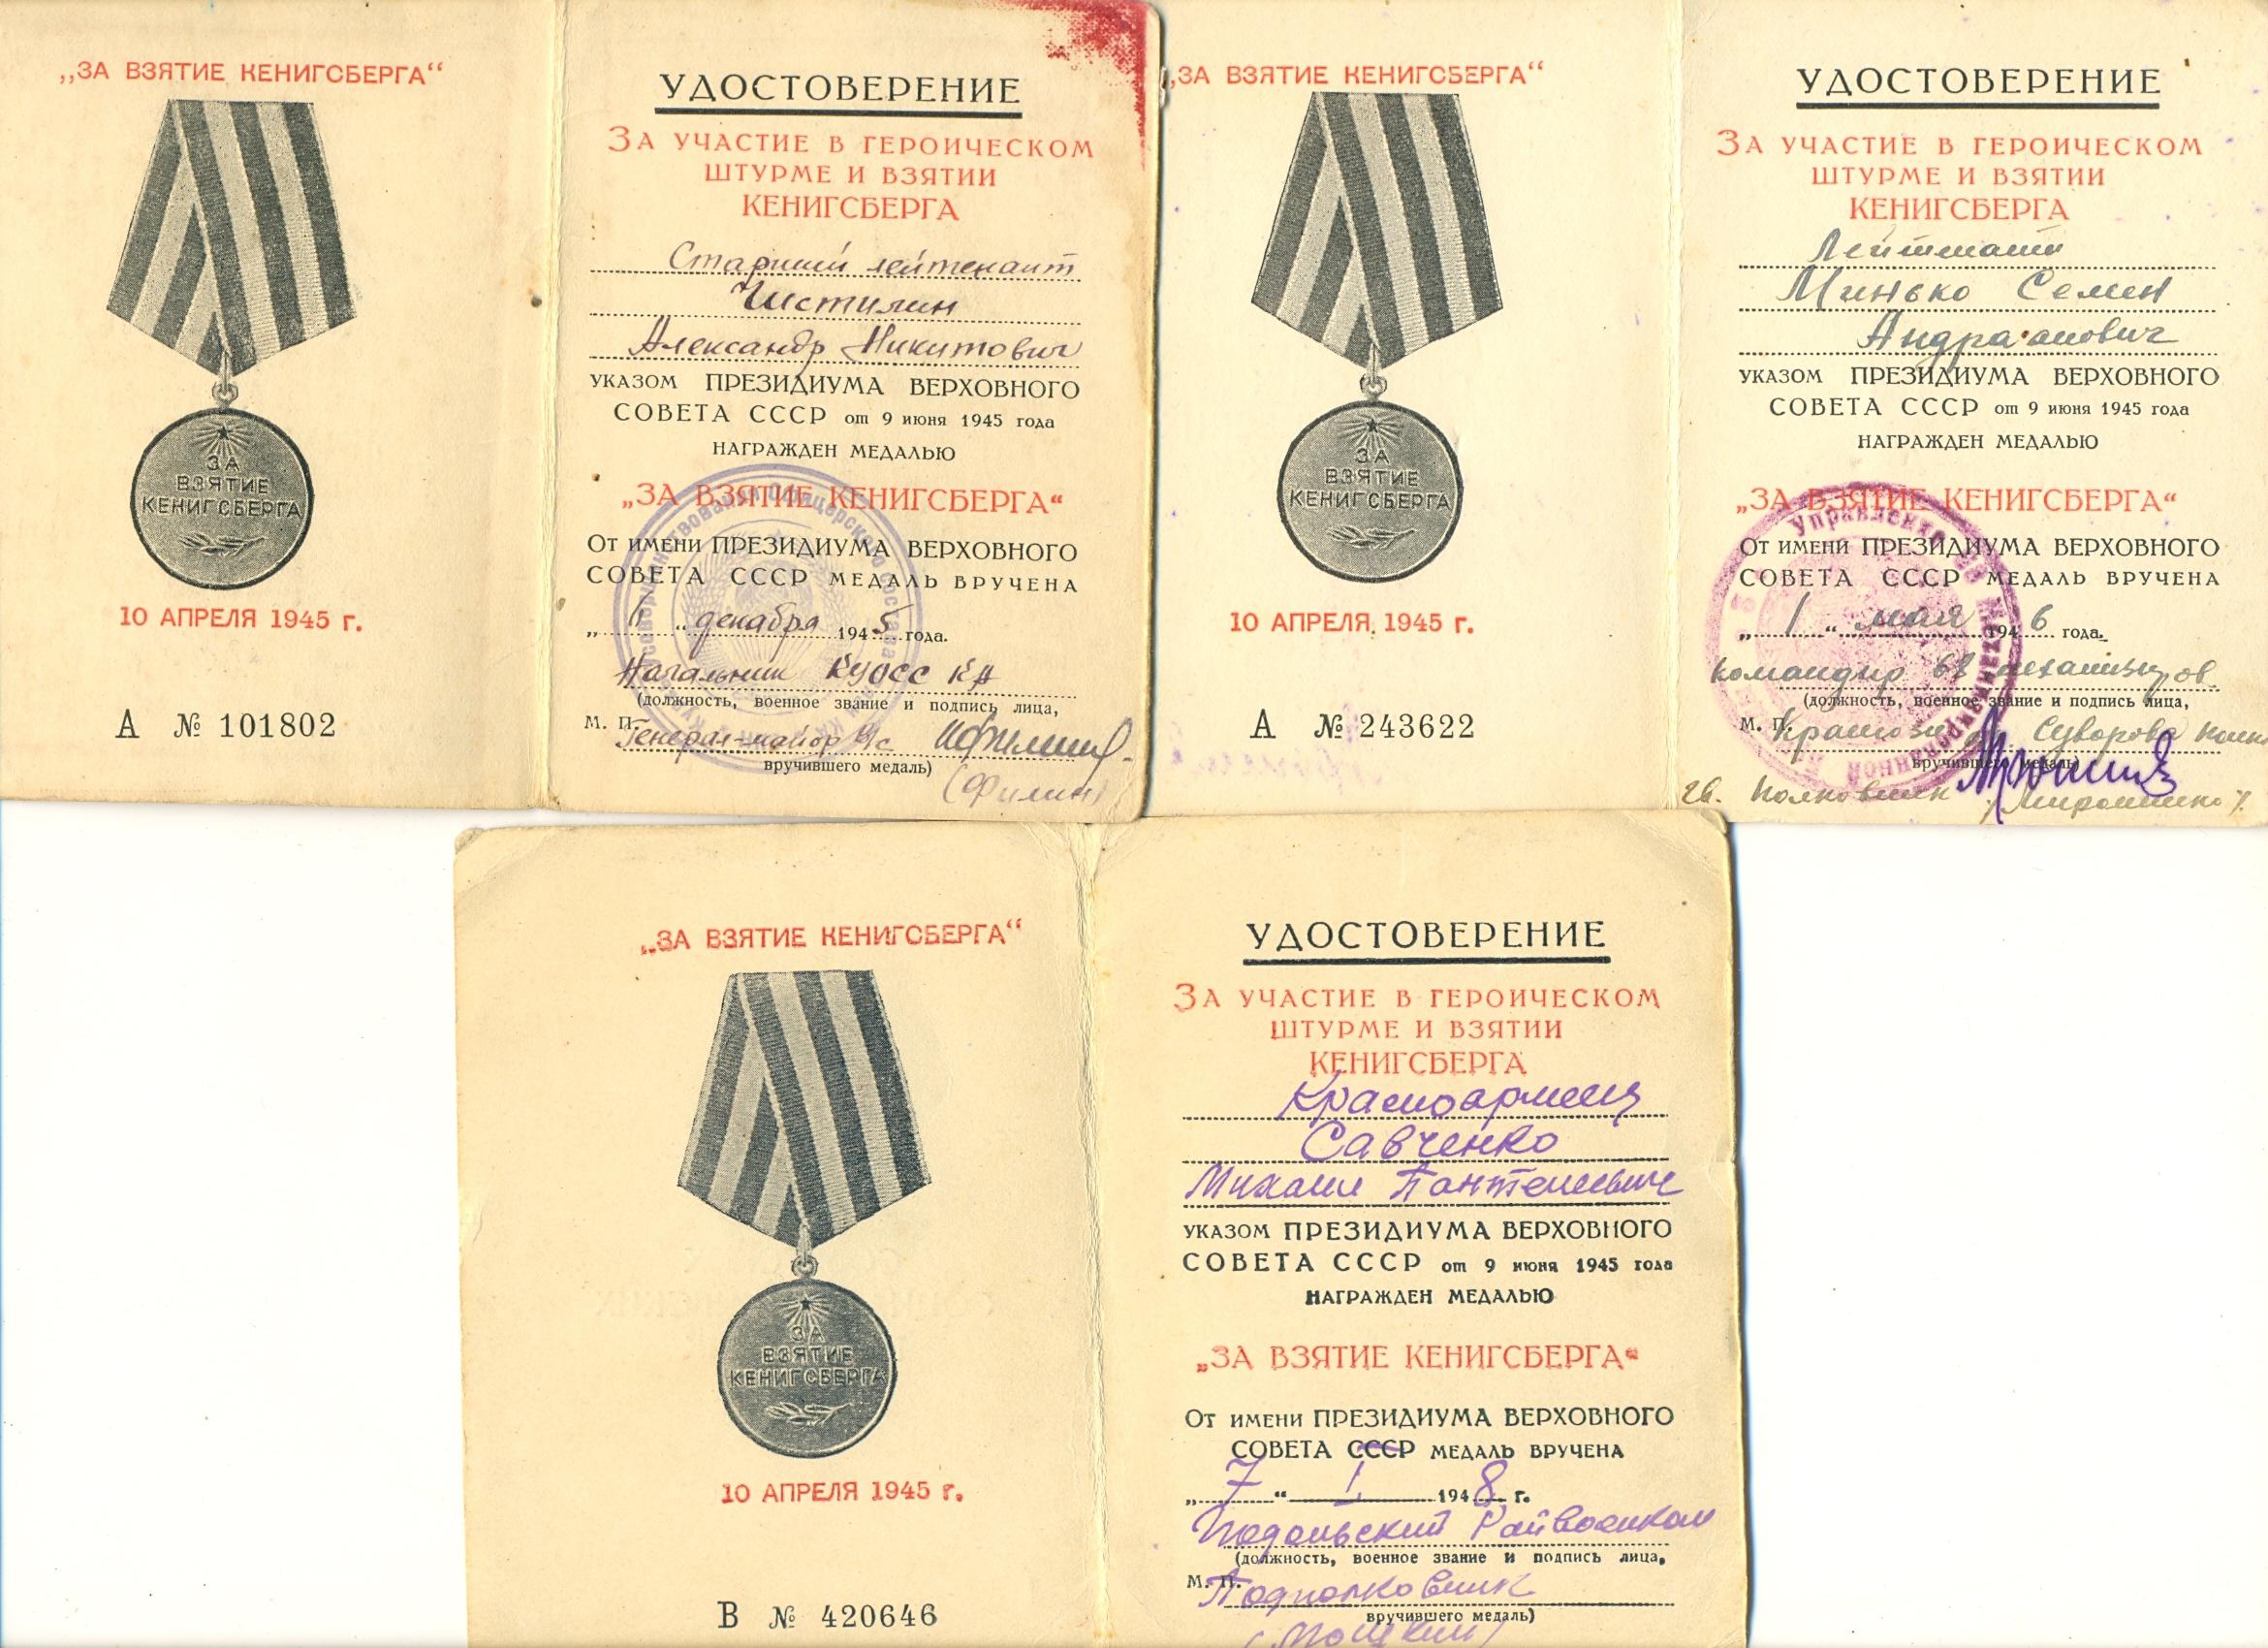 „ЗА ВЗЯТИЕ КЕНИГСБЕРГА“
ЗА
ВЗЯТИЕ
КЕНИГСБЕРГА
10 АПРЕЛЯ 1945 г.
А № 101802
УДОСТОВЕРЕНИЕ
ЗА УЧАСТИЕ В ГЕРОИЧЕСКОМ
ШТУРМЕ И ВЗЯТИИ
КЕНИГСБЕРГА
Старший лейтенант
Чистилин
Александр Никитович
УКАЗОМ ПРЕЗИДИУМА ВЕРХОВНОГО
СОВЕТА СССР от 9 июня 1945 года
НАГРАЖДЕН МЕДАЛЬЮ
„ЗА ВЗЯТИЕ КЕНИГСБЕРГА“
ОТ ИМЕНИ ПРЕЗИДИУМА ВЕРХОВНОГО
СОВЕТА СССР МЕДАЛЬ ВРУЧЕНА
„ “ декабря 1945 года.
Начальник КУОСС КА
(должность, военное звание и подпись лица,
М. П. Генерал-майор
вручившего медаль)
(Филин)
„ЗА ВЗЯТИЕ КЕНИГСБЕРГА“
ЗА
ВЗЯТИЕ
КЕНИГСБЕРГА
10 АПРЕЛЯ 1945 г.
А № 243622
УДОСТОВЕРЕНИЕ
ЗА УЧАСТИЕ В ГЕРОИЧЕСКОМ
ШТУРМЕ И ВЗЯТИИ
КЕНИГСБЕРГА
Лейтенант
Минько Семен
УКАЗОМ ПРЕЗИДИУМА ВЕРХОВНОГО
СОВЕТА СССР от 9 июня 1945 года
НАГРАЖДЕН МЕДАЛЬЮ
„ЗА ВЗЯТИЕ КЕНИГСБЕРГА“
Управление
ОТ ИМЕНИ ПРЕЗИДИУМА ВЕРХОВНОГО
СОВЕТА СССР МЕДАЛЬ ВРУЧЕНА
„1“ мая 1946 года.
командир
(должность, военное звание и подпись лица,
М. П. Суворова
вручившего медаль)
гв. Полковник
„ЗА ВЗЯТИЕ КЕНИГСБЕРГА“
ЗА
ВЗЯТИЕ
КЕНИГСБЕРГА
10 АПРЕЛЯ 1945 г.
В № 420646
УДОСТОВЕРЕНИЕ
ЗА УЧАСТИЕ В ГЕРОИЧЕСКОМ
ШТУРМЕ И ВЗЯТИИ
КЕНИГСБЕРГА
Красноармеец
Савченко
Михаил Пантелеевич
УКАЗОМ ПРЕЗИДИУМА ВЕРХОВНОГО
СОВЕТА СССР от 9 июня 1945 года
НАГРАЖДЕН МЕДАЛЬЮ
„ЗА ВЗЯТИЕ КЕНИГСБЕРГА“
ОТ ИМЕНИ ПРЕЗИДИУМА ВЕРХОВНОГО
СОВЕТА СССР МЕДАЛЬ ВРУЧЕНА
„7“ I 1948 г.
Подольский Райвоенком
(должность, военное звание и подпись лица,
М. П. Подполковник
вручившего медаль)